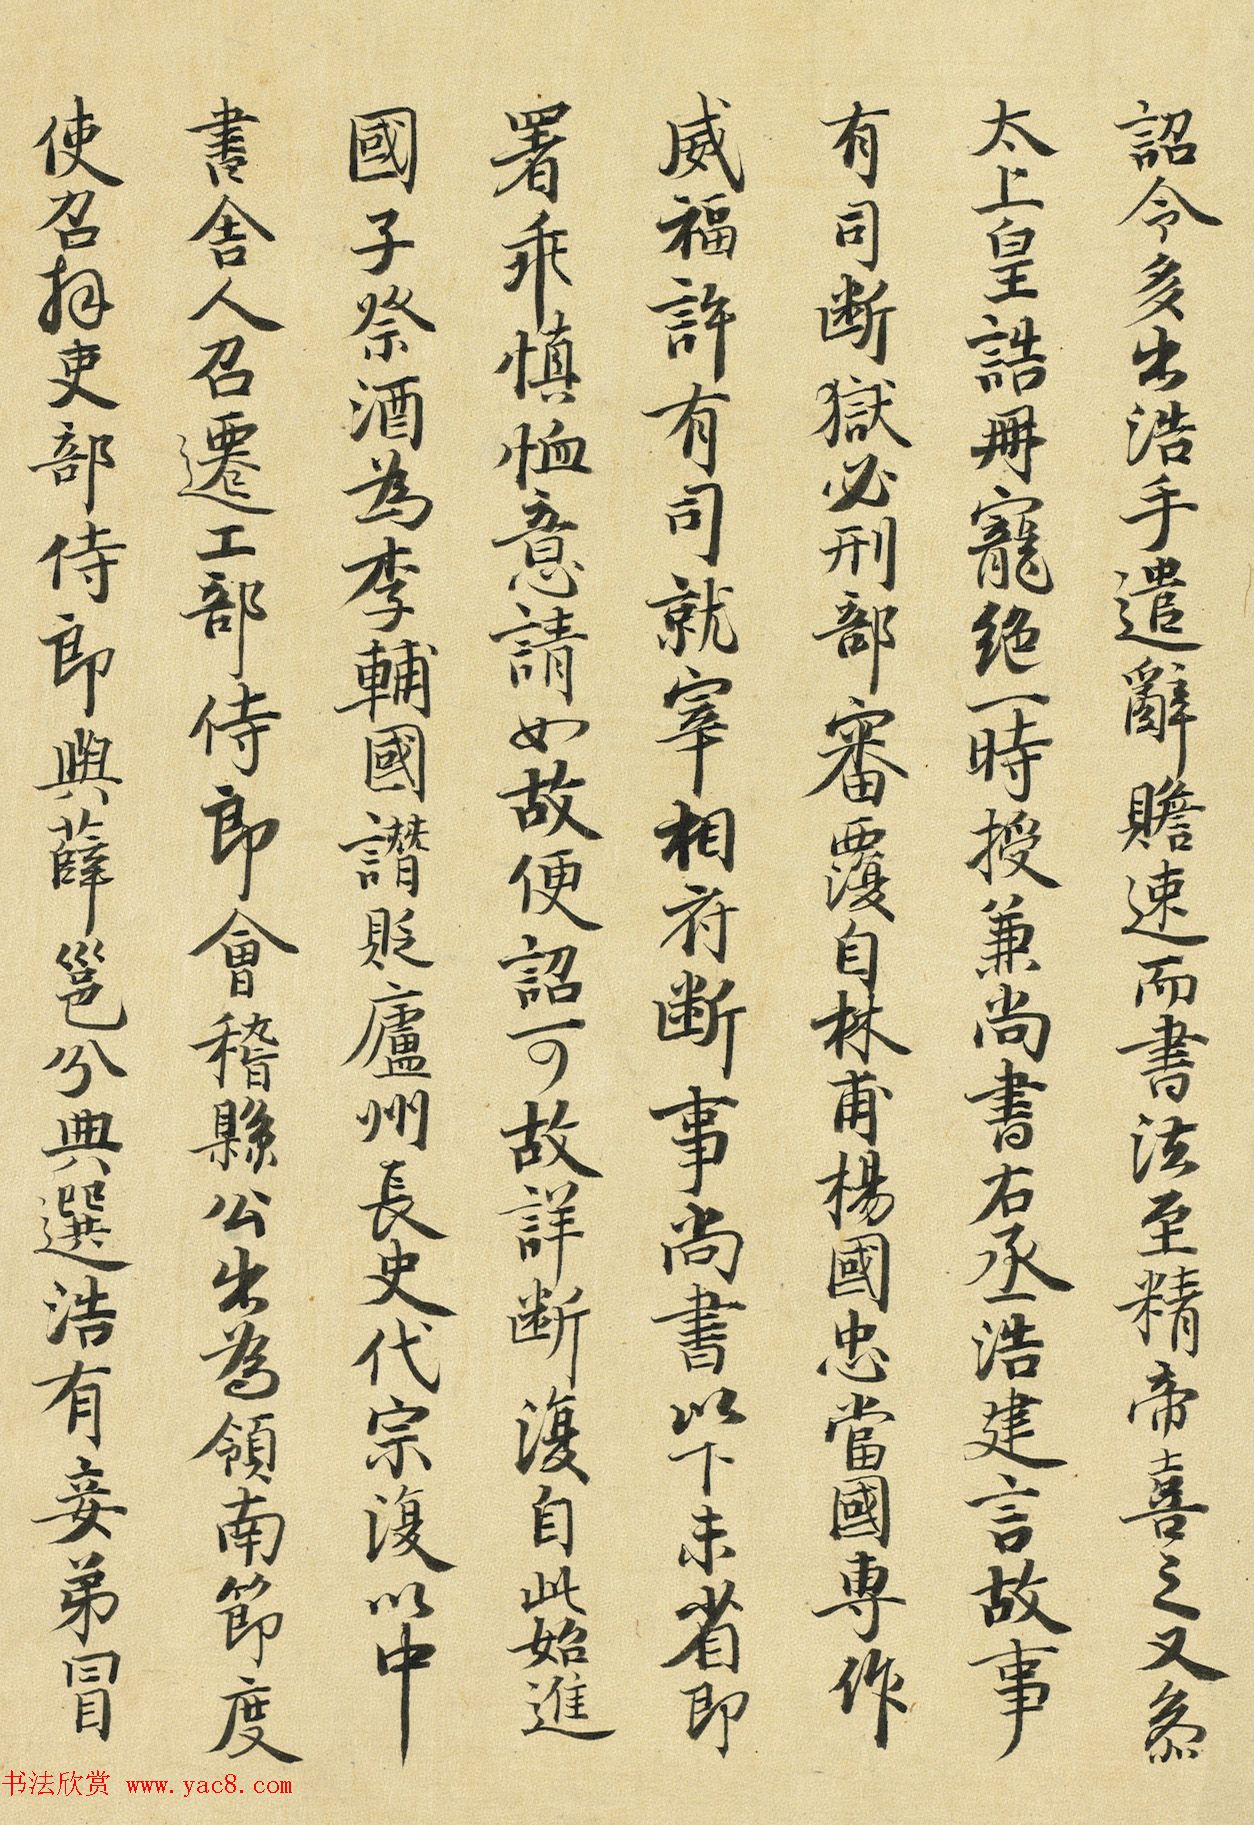 詔令多出浩手遣辭贍速而書法至精帝喜之又叅
太上皇誥冊寵絕一時授兼尚書右丞浩建言故事
有司断獄必刑部審覆自林甫楊國忠當國専作
威福許有司就宰相府断事尚書以下未省即
署乖慎恤意請如故便詔可故詳断復自此始進
國子祭酒為李輔國譖貶廬州長史代宗復以中
書舍人召遷工部侍郎會稽縣公出為領南節度
使召拜吏部侍郎與薛邕分典選浩有妾弟冒
书法欣赏 www.yac8.com